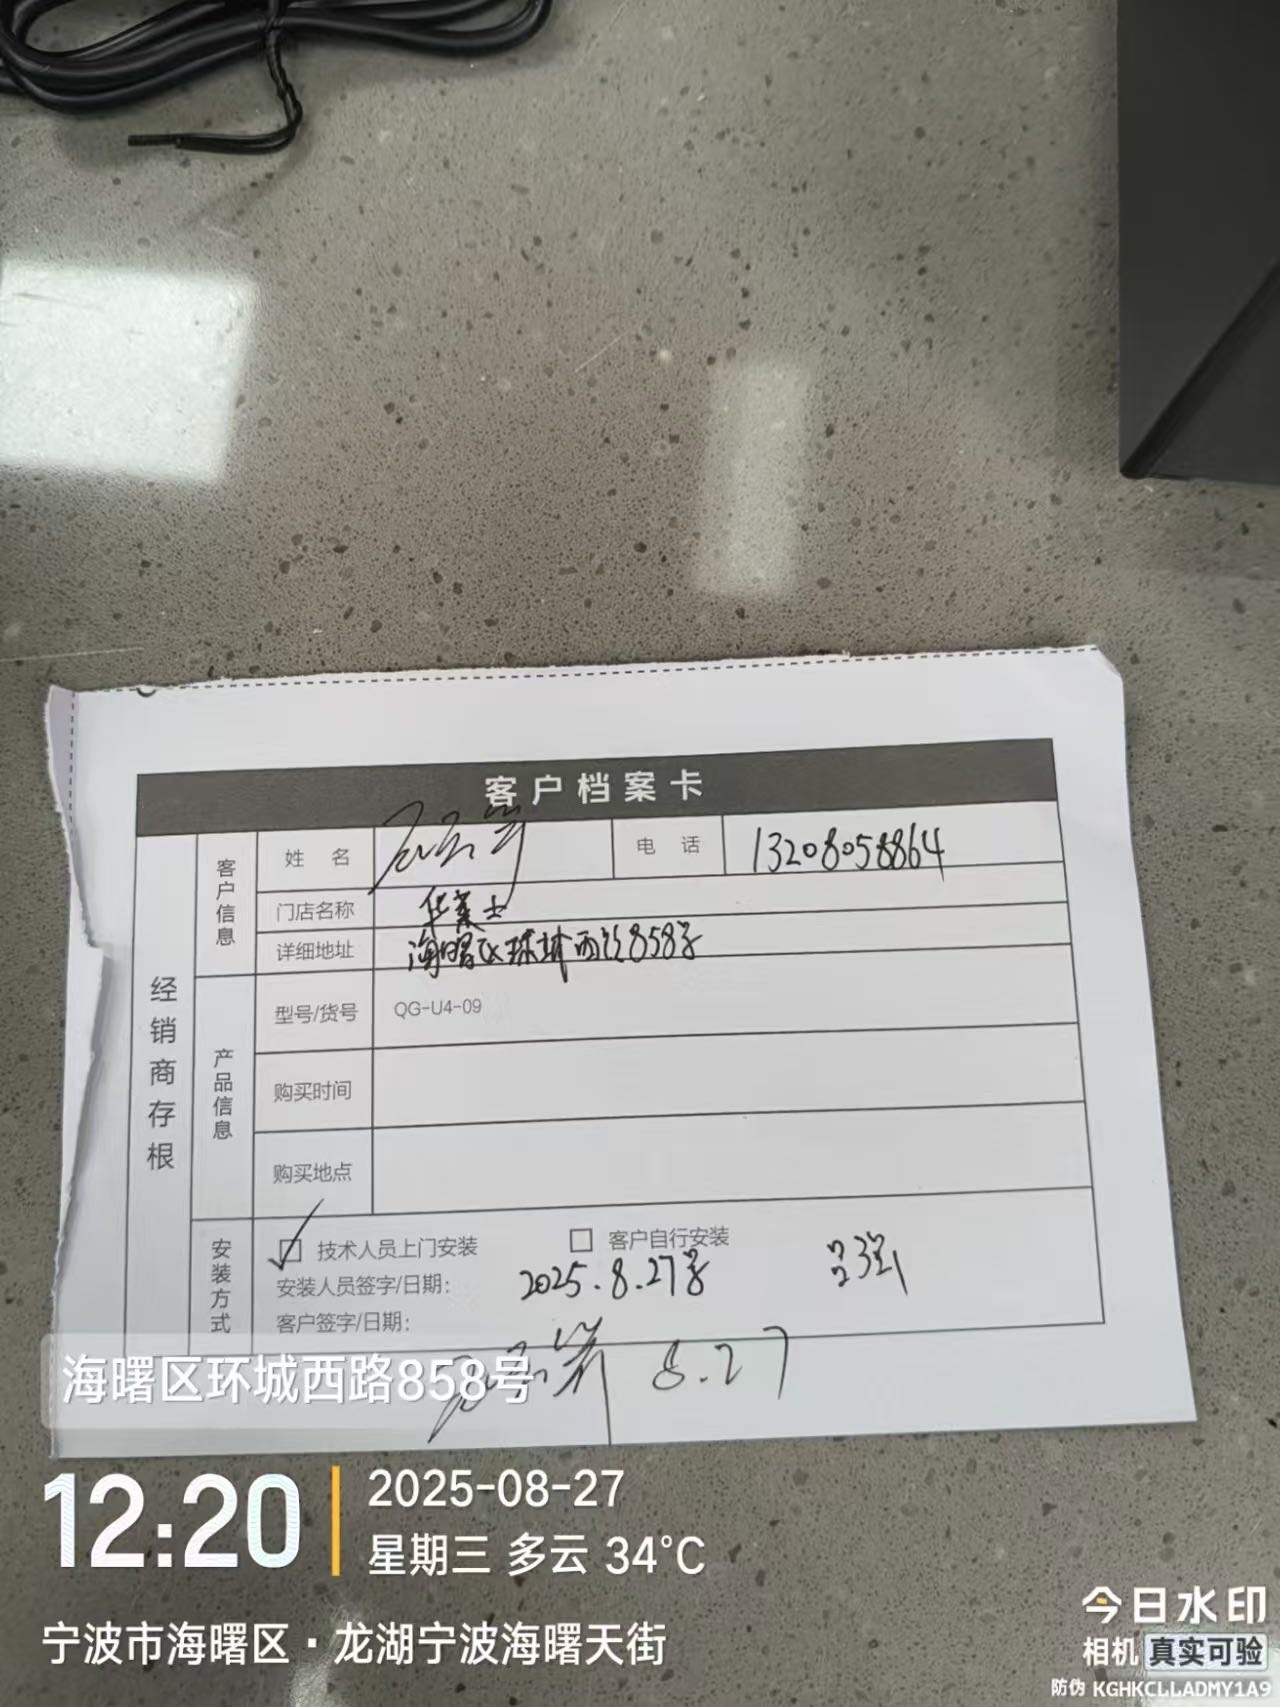 客户档案卡
经销商存根
客户信息
姓 名
电 话 13208058864
门店名称 华莱士
详细地址 海曙区环城西路858号
产品信息
型号/货号 QG-U4-09
购买时间
购买地点
安装方式
技术人员上门安装 客户自行安装
安装人员签字/日期: 2025.8.27号 吕强
客户签字/日期:
8.27
海曙区环城西路858号
12:20
2025-08-27
星期三 多云 34°C
宁波市海曙区·龙湖宁波海曙天街
今日水印
相机 真实可验
防伪 KGHKCLLADMY1A9